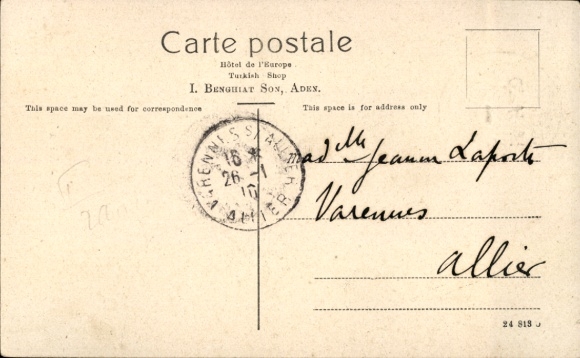 Carte postale
Hôtel de l'Europe
Turkish Shop
I. BENGHIAT SON, ADEN.
This space may be used for correspondence
This space is for address only
VARENNES S/ ALLIER
16 *
26 -1
10
ALLIER
Mad Lle Jeanne Laporte
Varennes
Allier
24 813